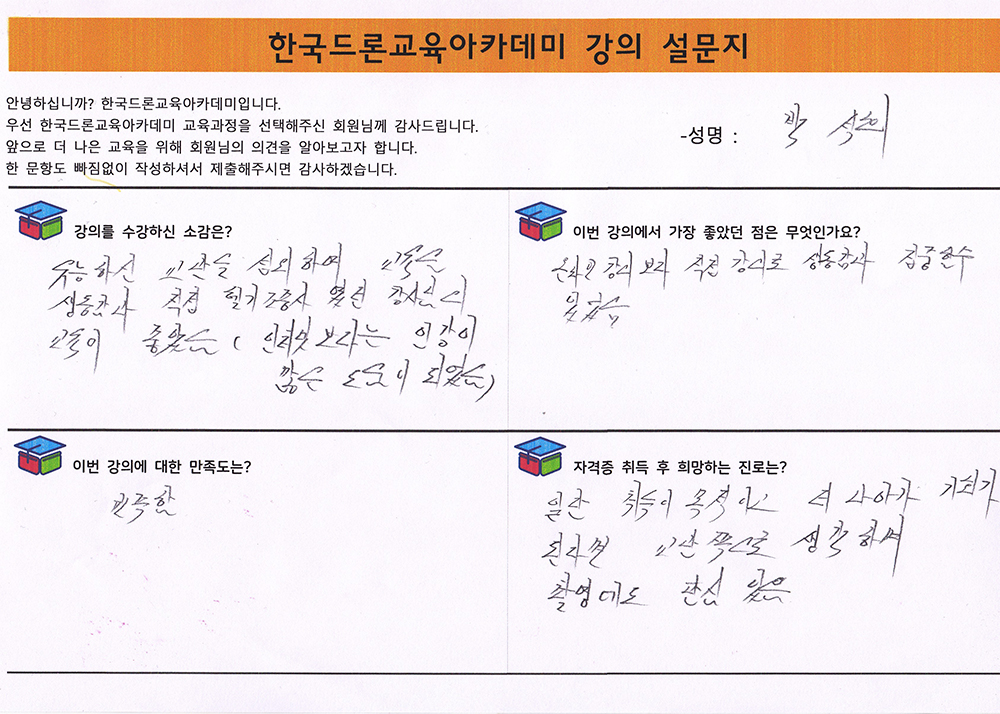 한국드론교육아카데미 강의 설문지
안녕하십니까? 한국드론교육아카데미입니다.
우선 한국드론교육아카데미 교육과정을 선택해주신 회원님께 감사드립니다.
앞으로 더 나은 교육을 위해 회원님의 의견을 알아보고자 합니다.
한 문항도 빠짐없이 작성하셔서 제출해주시면 감사하겠습니다.
-성명 : 박
강의를 수강하신 소감은?
유능하신 교관을 섭외하여 교육을
생동감과 직접 헬기조종사 였던 강사님의
교육이 좋았음 ( 인터넷 보다는 인강이
많은 도움이 되었음)
이번 강의에서 가장 좋았던 점은 무엇인가요?
온라인 강의 보다 직접 강의로 생동감과 집중할수
있었음
이번 강의에 대한 만족도는?
만족함
자격증 취득 후 희망하는 진로는?
일단 취득이 목적이고 더 나아가 기회가
된다면 교관쪽으로 생각하며
촬영에도 관심 있음